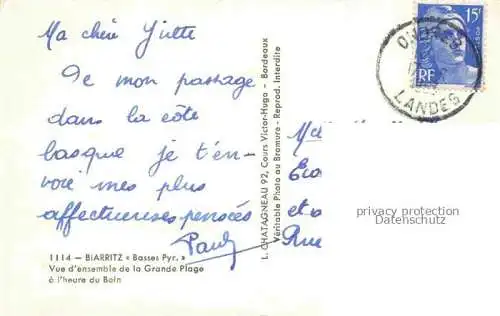 Ma chère Yvette
De mon passage
dans la côte
basque je t'en-
voie mes plus
affectueuses pensées
Paul
1114 — BIARRITZ « Basses Pyr. »
Vue d'ensemble de la Grande Plage
à l'heure du Bain
L. CHATAGNEAU 92, Cours Victor-Hugo - Bordeaux
Véritable Photo au Bromure - Reprod. Interdite
15F
RF
LANDES
et
Rue
privacy protection
Datenschutz